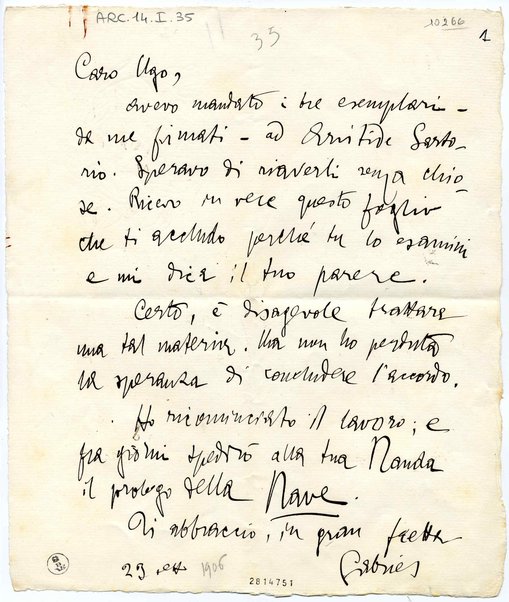 ARC.14.I.35
10266
35
1
Caro Ugo,
avevo mandato i tre esemplari –
da me firmati – ad Aristide Sarto-
rio. Speravo di riaverli senza chio-
se. Ricevo in vece questo foglio
che ti accludo perché tu lo esamini
e mi dica il tuo parere.
Certo, è disagevole trattare
una tal materia. Ma non ho perduta
la speranza di concludere l'accordo.
Ho ricominciato il lavoro; e
fra giorni spedirò alla tua Nanda
il prologo della Nave.
Ti abbraccio, in gran fretta
Gabriel
23 sett 1906
2814751